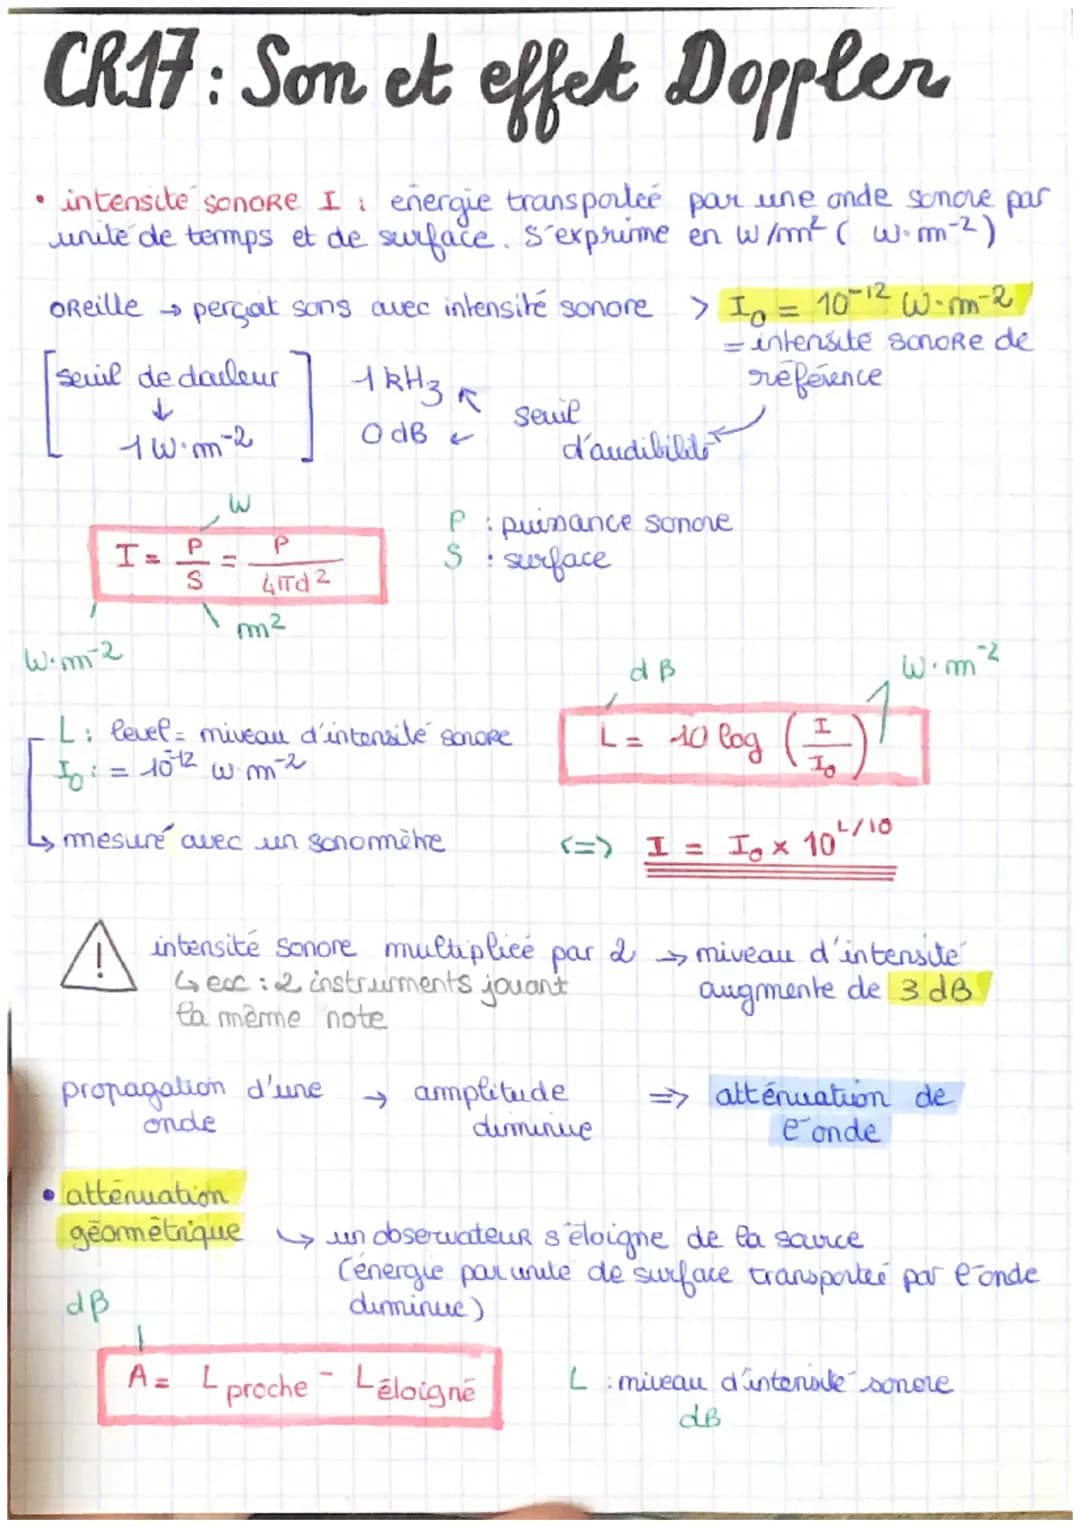 CR17 : Son et effet Doppler
• intensité sonore I : énergie transportée par une onde sonore par
unité de temps et de surface. S'exprime en W/m² ( W·m⁻²)
oreille → perçoit sons avec intensité sonore > I₀ = 10⁻¹² W·m⁻²
= intensité sonore de
référence
[seuil de douleur] 1 kHz
↓
1 W·m⁻²
0 dB
seuil
d'audibilité
W
I = P/S = P/4πd²
m²
W·m⁻²
P : puissance sonore
S : surface
dB
W·m⁻²
L = 10 log (I/I₀)
L : level = niveau d'intensité sonore
I₀ : = 10⁻¹² W·m⁻²
↳ mesuré avec un sonomètre
<=> I = I₀ × 10^L/10
! intensité sonore multipliée par 2 → niveau d'intensité
augmente de 3 dB
↳ ex : 2 instruments jouant
la même note
propagation d'une → amplitude => atténuation de
onde diminue l'onde
• atténuation
géométrique ↳ un observateur s'éloigne de la source
(énergie par unité de surface transportée par l'onde
diminue)
dB
A = L proche - L éloigné
L : niveau d'intensité sonore
dB